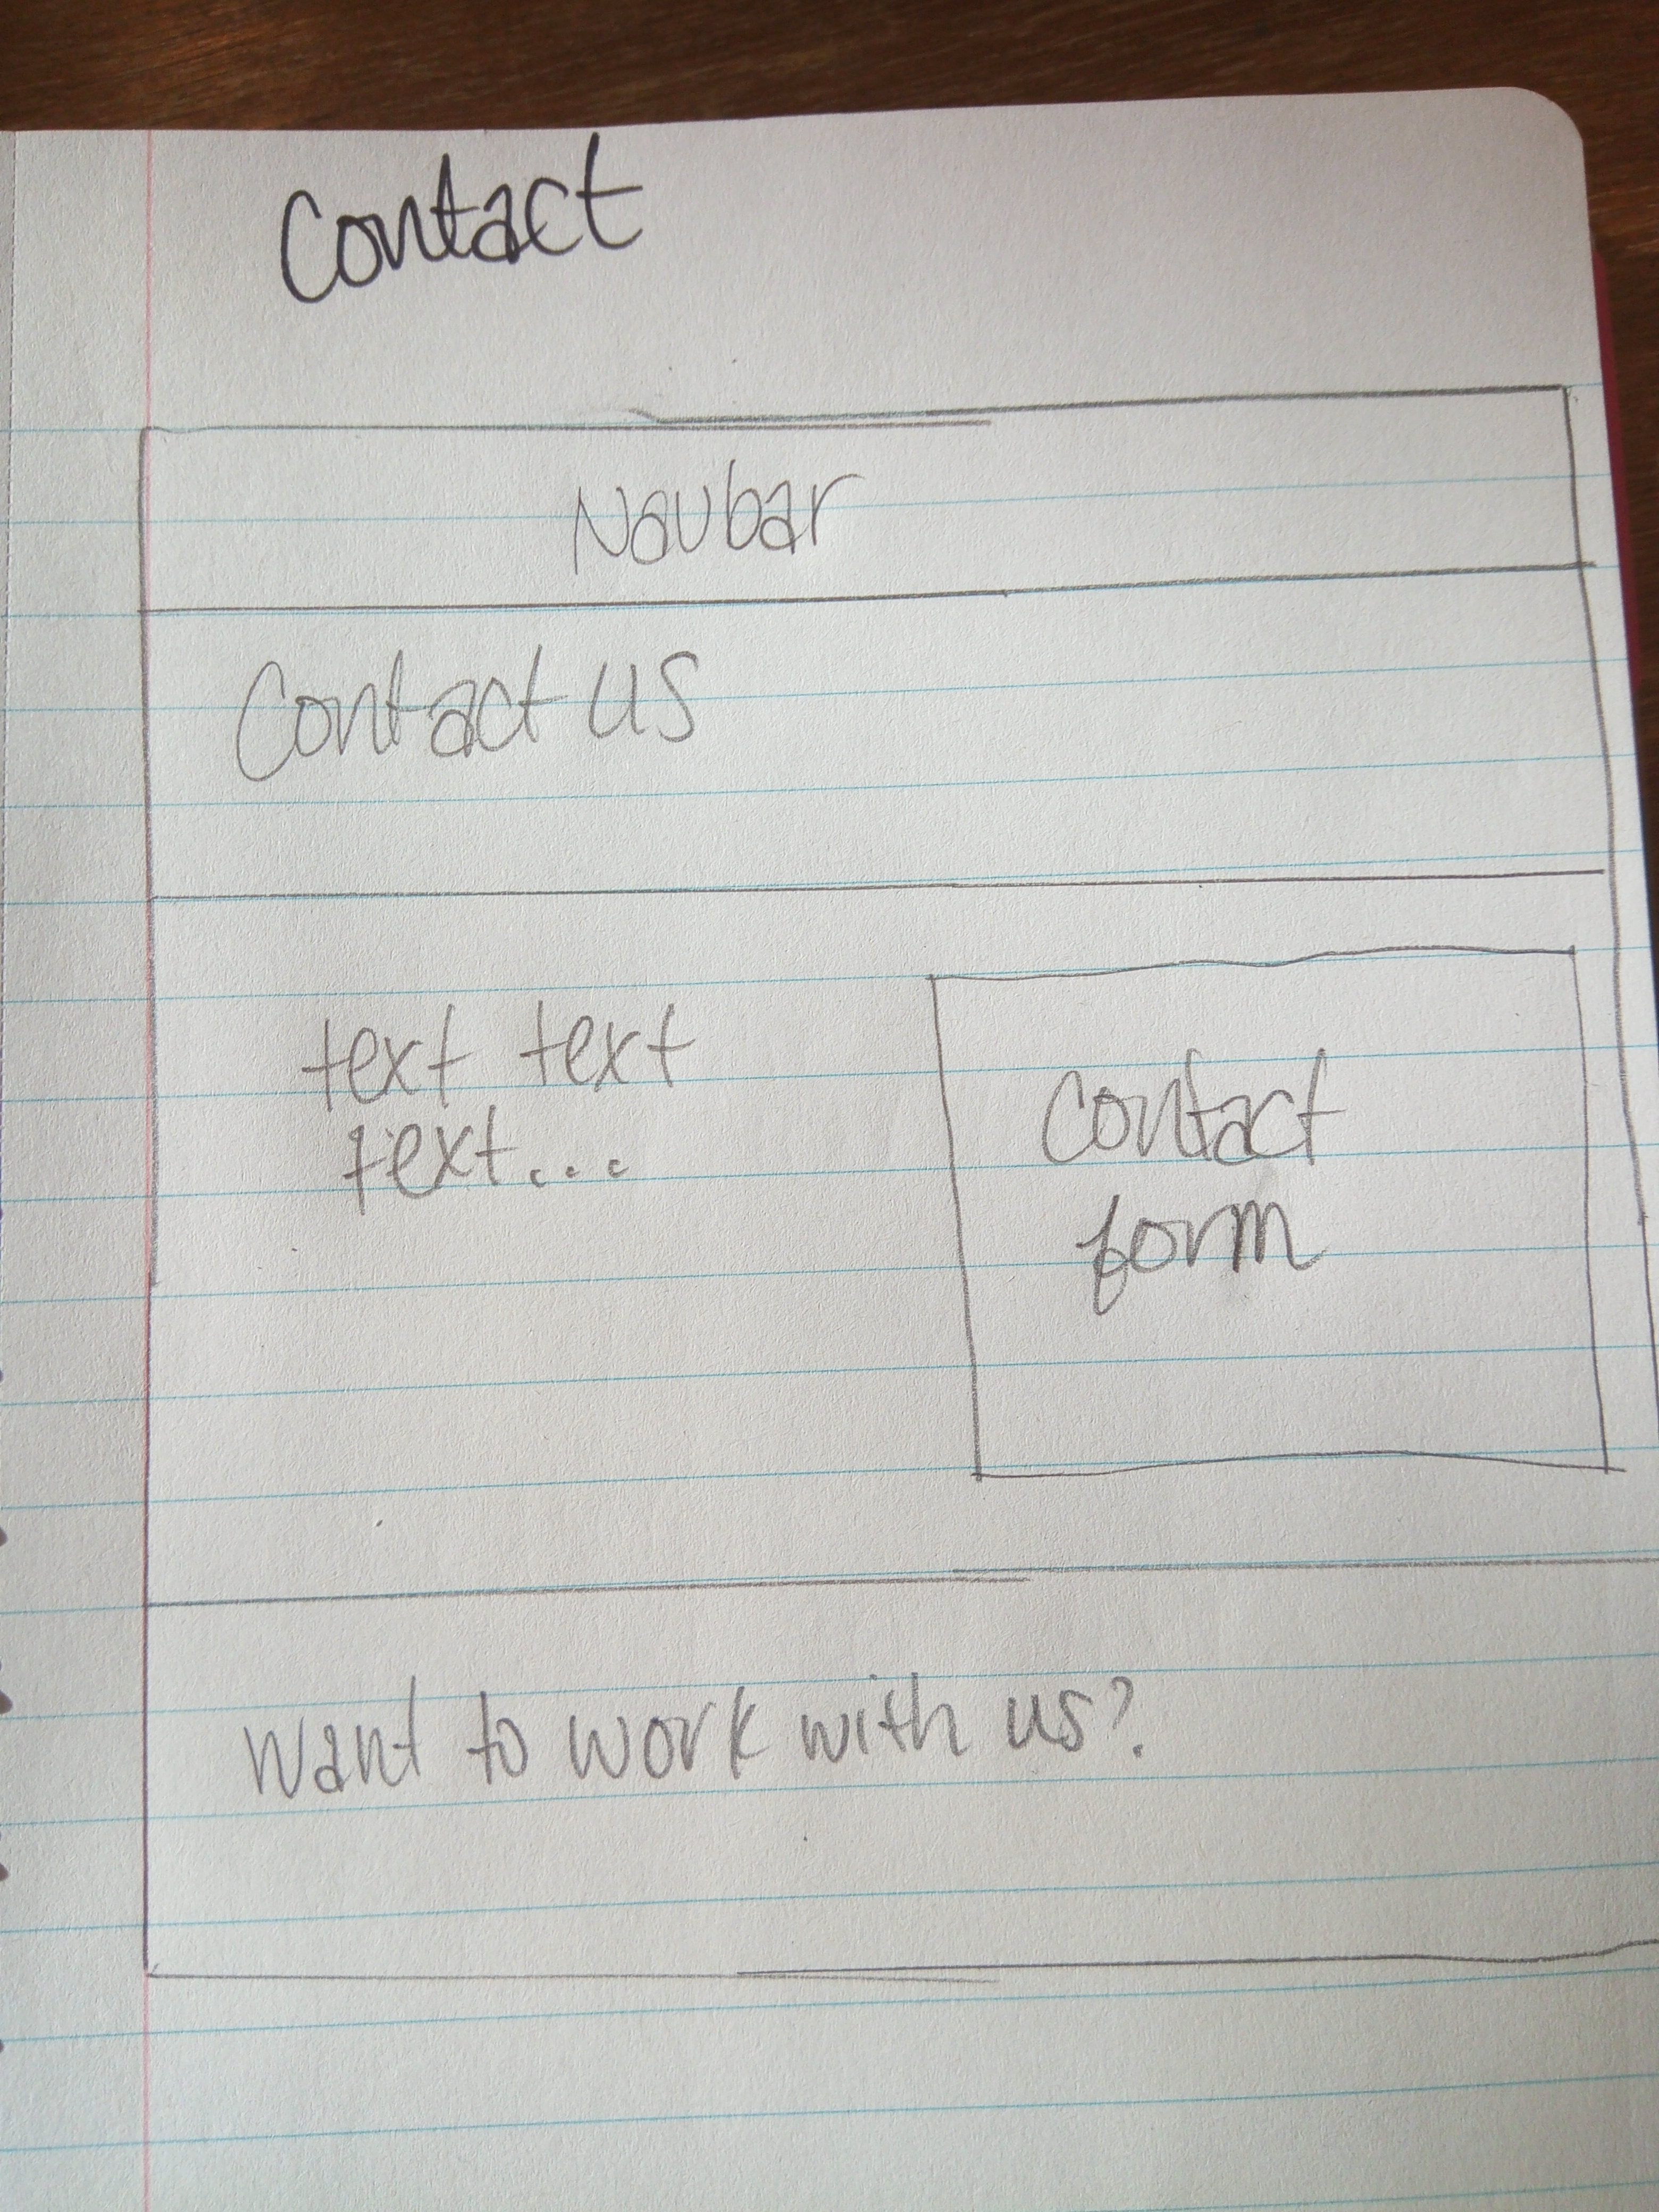 Contact
Navbar
Contact us
text text
text...
Contact
form
Want to work with us?